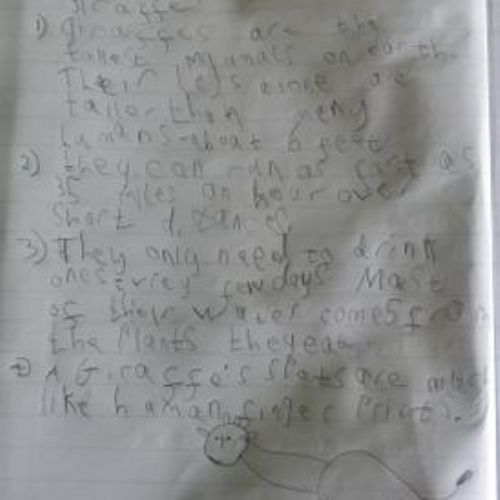 Giraffe
1) giraffes are the
tallest mamals on earth.
Their legs alone are
taller than meny
humans-about 6 feet
2) they can run as fast as
35 miles an hour over
short distances
3) They only need to drink
ones every few days Mast
of their comes from
the Plants
A Giraffe's spots are much
like human finger Prints.